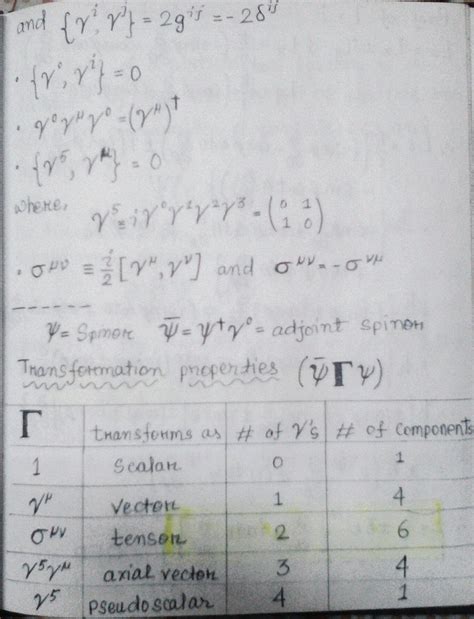 and {γ^i, γ^j} = 2g^{ij} = -2δ^{ij}
· {γ^0, γ^i} = 0
· γ^0 γ^μ γ^0 = (γ^μ)^†
· {γ^5, γ^μ} = 0
where,
γ^5 ≡ iγ^0γ^1γ^2γ^3 = (0 1
1 0)
· σ^{μν} ≡ i/2 [γ^μ, γ^ν] and σ^{μν} = -σ^{νμ}
------
ψ = Spinor ψ̄ = ψ^†γ^0 = adjoint spinor
Transformation properties (ψ̄ Γ ψ)
Γ transforms as # of γ's # of Components
1 Scalar 0 1
γ^μ vector 1 4
σ^{μν} tensor 2 6
γ^5γ^μ axial vector 3 4
γ^5 pseudoscalar 4 1